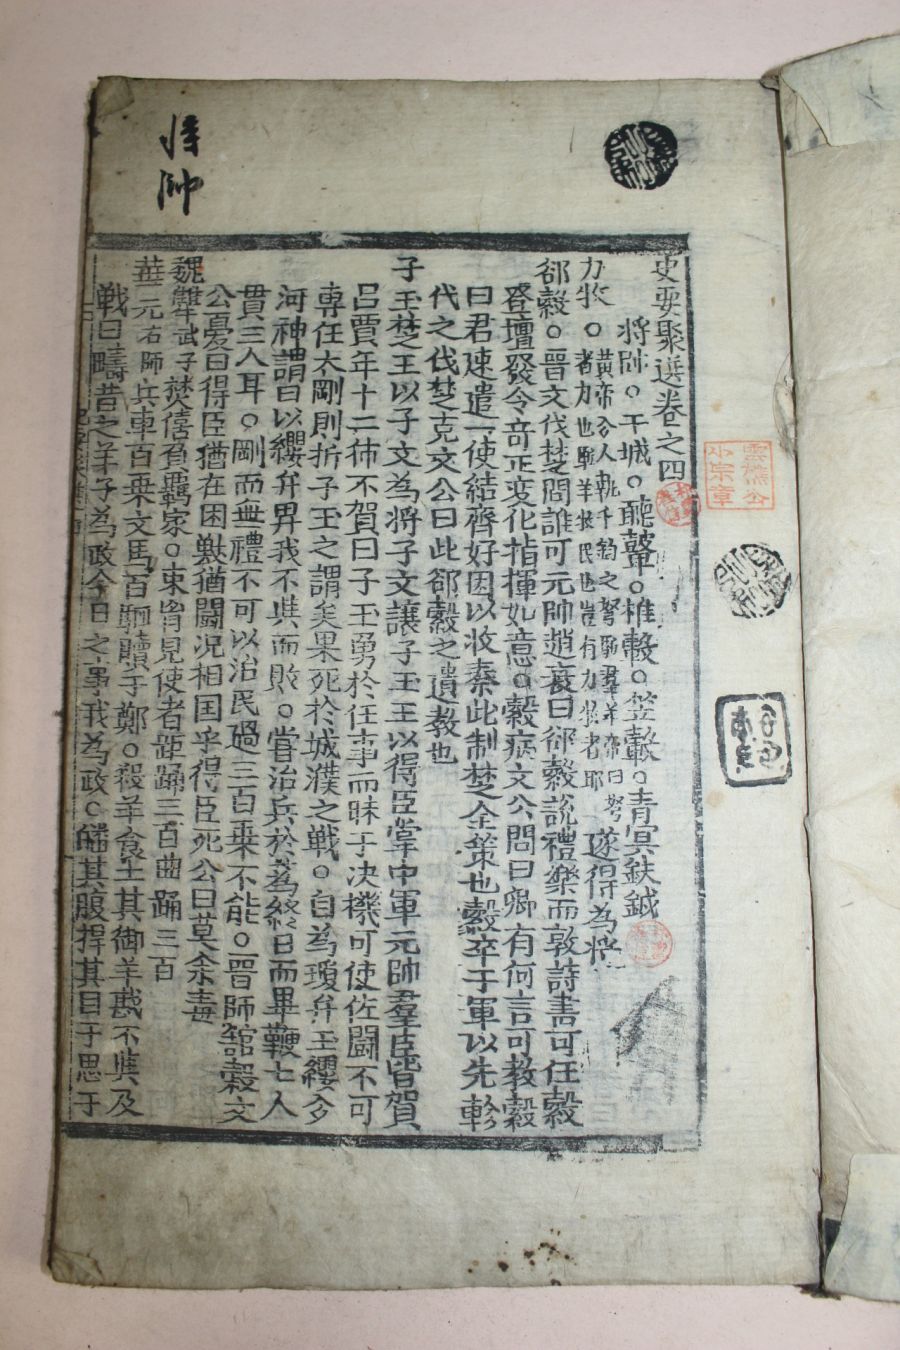 將
帥
史要聚選卷之四
將帥○干城○聽鼙○推轂○笠轂○青冥鈇鉞
力牧○黃帝夢人執千鈞之弩駈羣羊帝曰弩
者力也駈羊牧民也豈有力牧者耶遂得為將
郤縠○晉文伐楚問誰可元帥趙衰曰郤縠說禮樂而敦詩書可任縠
登壇發令奇正変化指揮如意○縠病文公問曰卿有何言可教縠
曰君速遣一使結齊好因以收秦此制楚全策也縠卒于軍以先軫
代之伐楚克文公曰此郤縠之遺教也
子玉楚王以子文為將子文讓子玉王以得臣掌中軍元帥羣臣皆賀
呂賈年十二仲不賀曰子玉勇於任事而昧于决機可使佐闘不可
專任太剛則折子玉之謂矣果死於城濮之戰○自為瓊弁玉纓夢
河神謂曰以纓弁畀我不與而敗○嘗治兵於蒍終日而畢鞭七人
貫三人耳○剛而無禮不可以治民過三百乘不能○晋師舘穀文
公憂曰得臣猶在困獸猶鬪况相国乎得臣死公曰莫余毒
魏犨武子焚僖負羈家○束胷見使者距踊三百曲踊三百
華元右師兵車百乗文馬百駟贖于鄭○殺羊食士其御羊斟不與及
戰曰疇昔之羊子為政今日之事我為政○皤其腹睅其目于思于